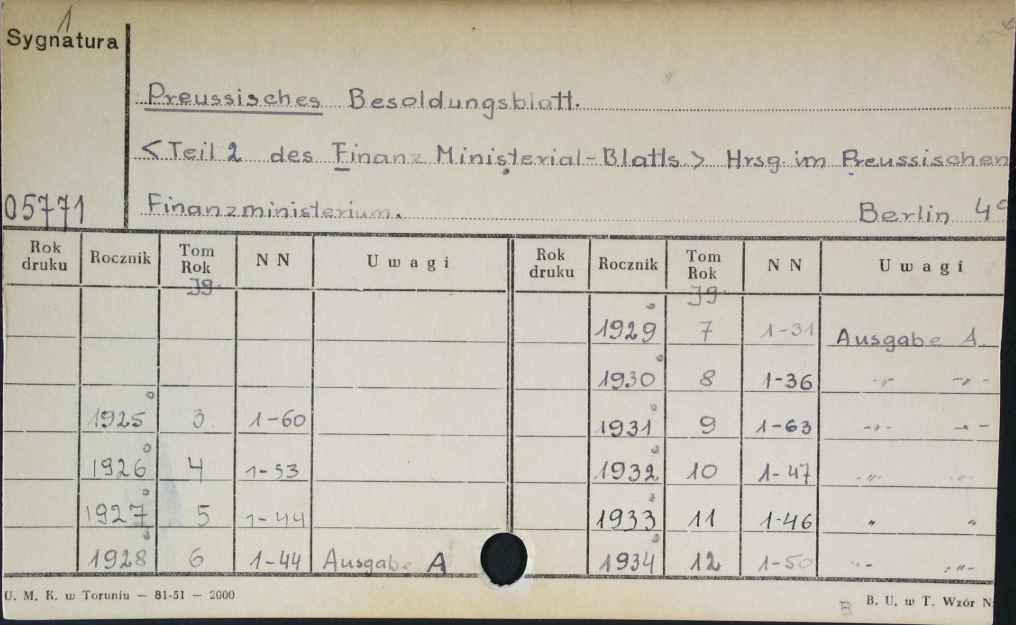 1
Sygnatura
Preussisches Besoldungsblatt.
<Teil 2 des Finanz Ministerial-Blatts> Hrsg. im Preussischen
05771 Finanzministerium. Berlin 4°
Rok druku Rocznik Tom Rok NN Uwagi Rok druku Rocznik Tom Rok NN Uwagi
Jg. Jg.
1929 7 1-31 Ausgabe A.
1930 8 1-36 -"- -"-
1925 3. 1-60 1931 9 1-63 -"- -"-
1926 4 1-53 1932 10 1-47 -"- -"-
1927 5 1-44 1933 11 1-46 " "
1928 6 1-44 Ausgabe A 1934 12 1-50 -"- -"-
U. M. K. w Toruniu — 81-51 — 2000
B. U. w T. Wzór N